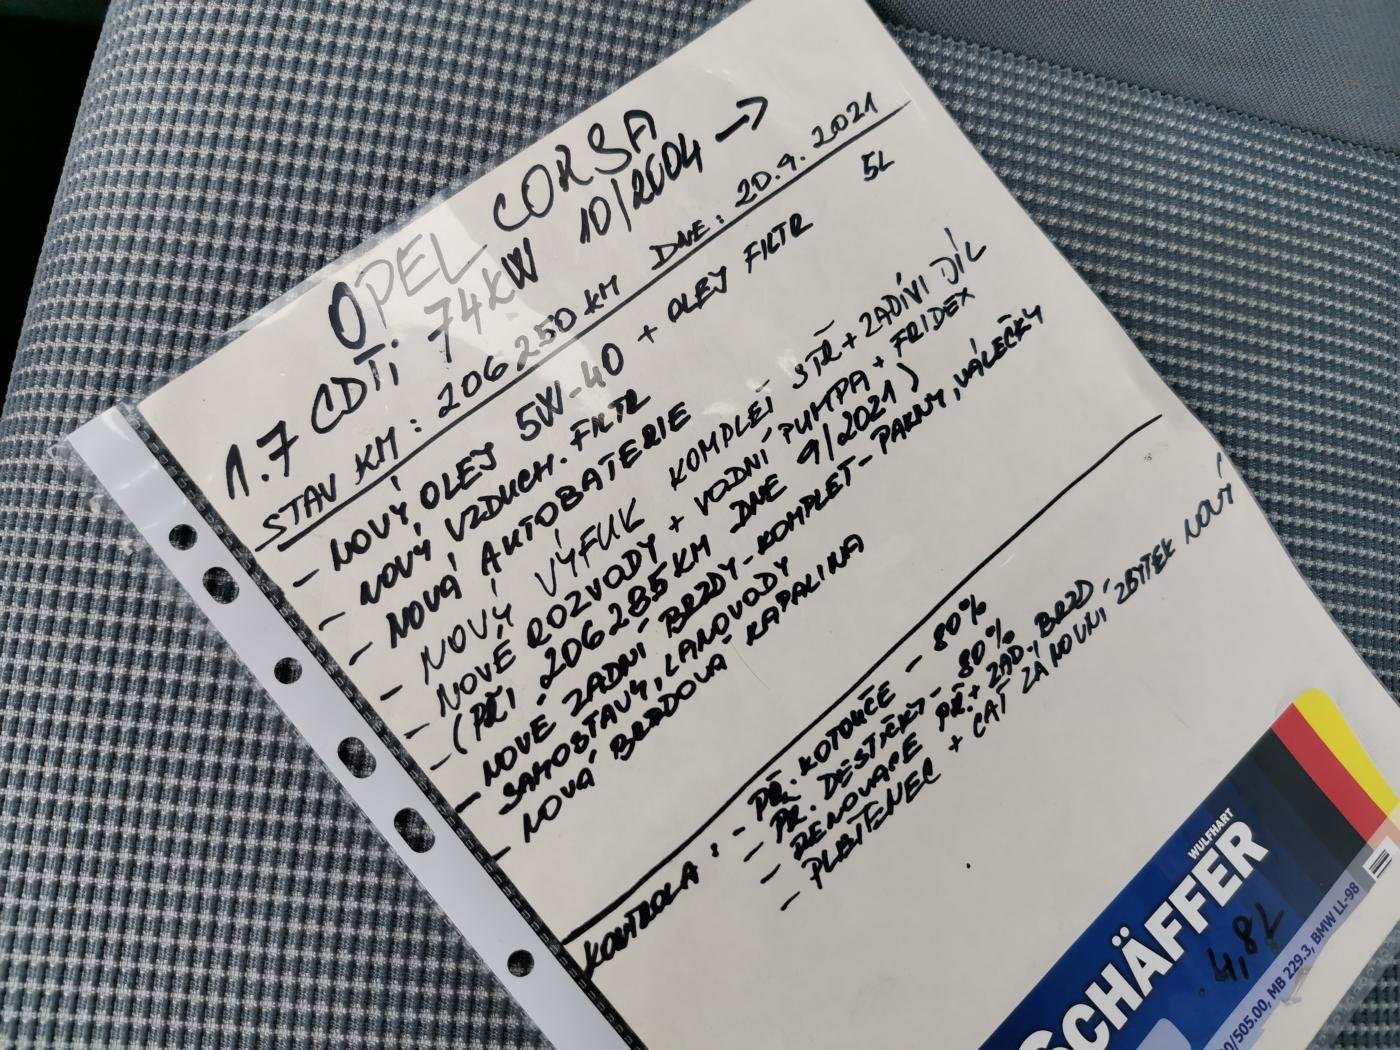 OPEL CORSA
1.7 CDTi 74kW 10/2004 →
STAV KM: 206250 KM DNE: 20.9.2021
- NOVÝ OLEJ 5W-40 + OLEJ FILTR 5L
- NOVÝ VZDUCH. FILTR
- NOVÁ AUTOBATERIE
- NOVÝ VÝFUK KOMPLET STŘ + ZADNÍ DÍL
- NOVÉ ROZVODY + VODNÍ PUMPA + FRIDEX
(PŘI 206285KM DNE 9/2021)
- NOVÉ ZADNÍ BRZDY-KOMPLET-PAKNY, VÁLEČKY
SAMOSTAVY, LANOVODY
- NOVÁ BRZDOVÁ KAPALINA
KONTROLA: - PŘ. KOTOUČE - 80%
- PŘ. DESTIČKY - 80%
- RENOVACE PŘ. + ZAD. BRZD
- PLBITENEC + ČÁST ZÁNOVNÍ, ZBYTEK NOVÝ
WULFHART
SCHÄFFER
4,8L
0/505.00, MB 229.3, BMW LL-98